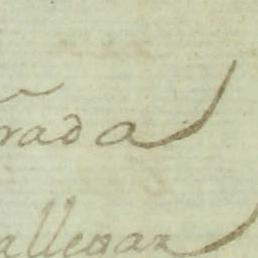 rada
allegar